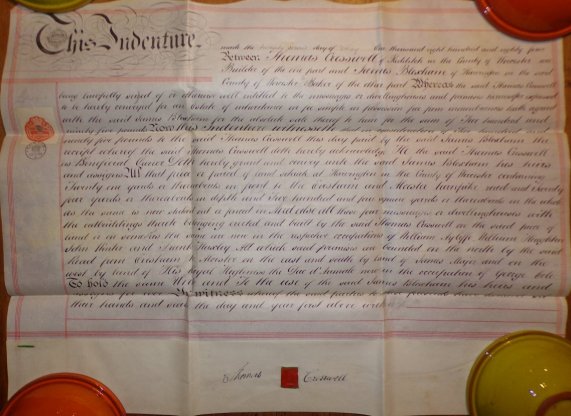 This Indenture
made the twenty second day of One thousand eight hundred and eighty four
Between Thomas Crosswell of Redditch in the County of Worcester
Builder of the one part and James Bloxham of Harvington in the said
County of Worcester Baker of the other part Whereas the said Thomas Crosswell
being lawfully seised of or otherwise well entitled to the messuages or dwellinghouses and premises hereinafter expressed
to be hereby conveyed for an Estate of inheritance in fee simple in possession free from incumbrances hath agreed
with the said James Bloxham for the absolute sale thereof to him for the sum of Two hundred and
ninety five pounds Now this Indenture witnesseth that in consideration of Two hundred and
ninety five pounds to the said Thomas Crosswell this day paid by the said James Bloxham the
receipt whereof the said Thomas Crosswell doth hereby acknowledge He the said Thomas Crosswell
as Beneficial Owner Doth hereby grant and convey unto the said James Bloxham his heirs
and assigns All that piece or parcel of land situate at Harvington in the County of Worcester containing
Twenty one yards or thereabouts in front to the Evesham and Alcester turnpike road and Twenty
four yards or thereabouts in depth and Five hundred and four square yards or thereabouts in the whole
as the same is now staked out and fenced in And also all those four messuages or dwellinghouses with
the outbuildings thereto belonging erected and built by the said Thomas Crosswell on the said piece of
land as the same are now in the respective occupations of William William
John and Frank All which said premises are bounded on the north by the said
Road from Evesham to Alcester on the east and south by land of James and on the
west by land of His Royal Highness the Duc d'Aumale now in the occupation of George Cole
To hold the same Unto and To the use of the said James Bloxham his heirs and
assigns for ever In witness whereof the said parties to these presents have hereunto set
their hands and seals the day and year first above written
Thomas Crosswell